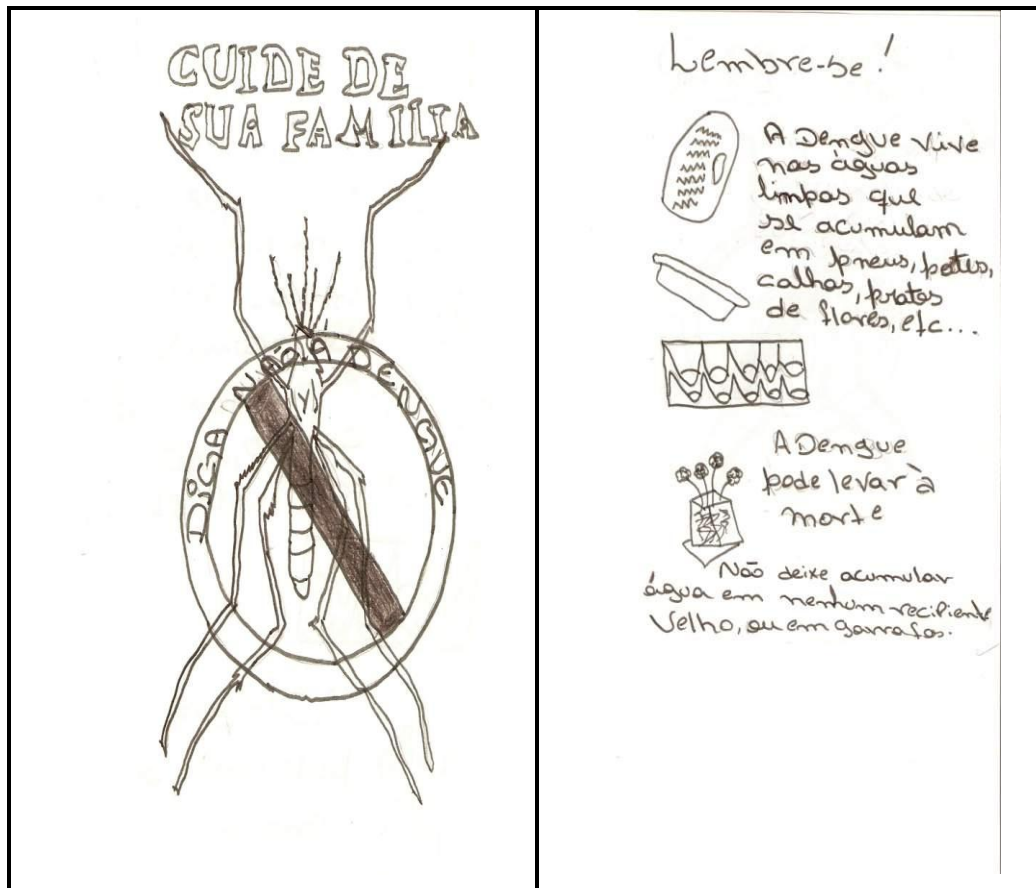 CUIDE DE
SUA FAMÍLIA
DIGA NÃO À DENGUE
Lembre-se!
A Dengue vive
nas águas
limpas que
se acumulam
em pneus, potes,
calhas, pratos
de flores, etc...
A Dengue
pode levar à
morte
Não deixe acumular
água em nenhum recipiente
velho, ou em garrafas.